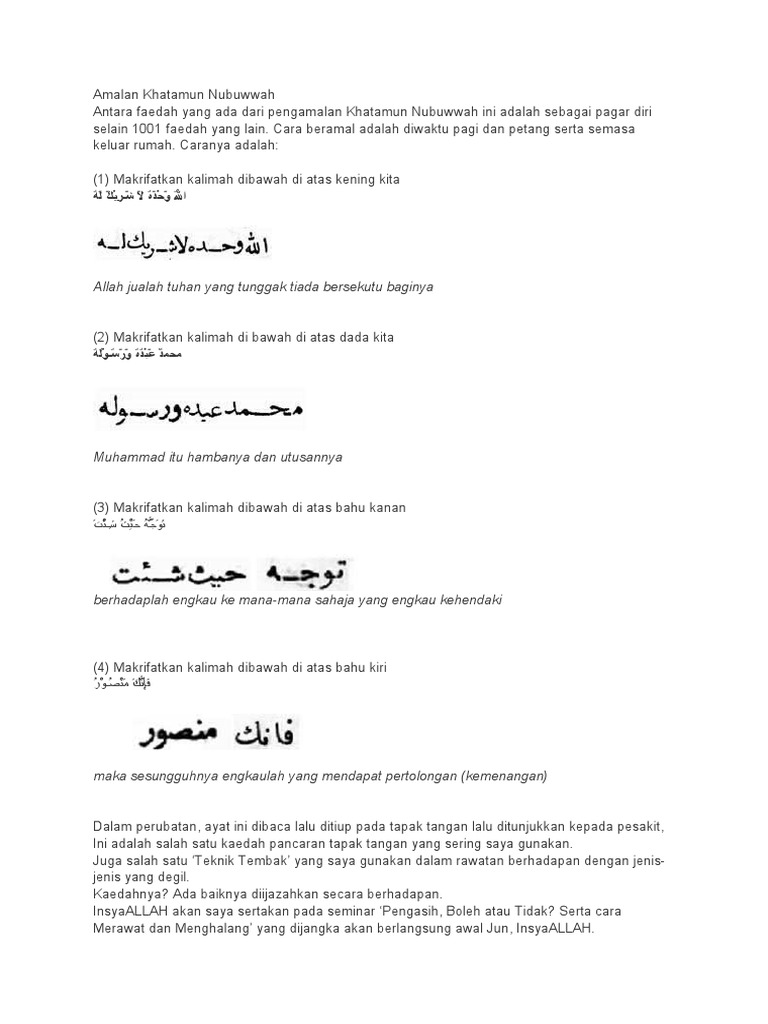 Amalan Khatamun Nubuwwah
Antara faedah yang ada dari pengamalan Khatamun Nubuwwah ini adalah sebagai pagar diri
selain 1001 faedah yang lain. Cara beramal adalah diwaktu pagi dan petang serta semasa
keluar rumah. Caranya adalah:
(1) Makrifatkan kalimah dibawah di atas kening kita
اللهُ وَحْدَهُ لاَ شَرِيْكَ لَهُ
الله وحـــده لا شـريك لـــه
Allah jualah tuhan yang tunggak tiada bersekutu baginya
(2) Makrifatkan kalimah di bawah di atas dada kita
محمدٌ عَبْدُهُ وَرَسُوْلُهُ
محـــمد عبده ورســوله
Muhammad itu hambanya dan utusannya
(3) Makrifatkan kalimah dibawah di atas bahu kanan
تَوَجَّهْ حَيْثُ شِئْتَ
توجـــه حيث شـــئت
berhadaplah engkau ke mana-mana sahaja yang engkau kehendaki
(4) Makrifatkan kalimah dibawah di atas bahu kiri
فَإِنَّكَ مَنْصُوْرٌ
فانك منصور
maka sesungguhnya engkaulah yang mendapat pertolongan (kemenangan)
Dalam perubatan, ayat ini dibaca lalu ditiup pada tapak tangan lalu ditunjukkan kepada pesakit,
Ini adalah salah satu kaedah pancaran tapak tangan yang sering saya gunakan.
Juga salah satu ‘Teknik Tembak’ yang saya gunakan dalam rawatan berhadapan dengan jenis-
jenis yang degil.
Kaedahnya? Ada baiknya diijazahkan secara berhadapan.
InsyaALLAH akan saya sertakan pada seminar ‘Pengasih, Boleh atau Tidak? Serta cara
Merawat dan Menghalang’ yang dijangka akan berlangsung awal Jun, InsyaALLAH.